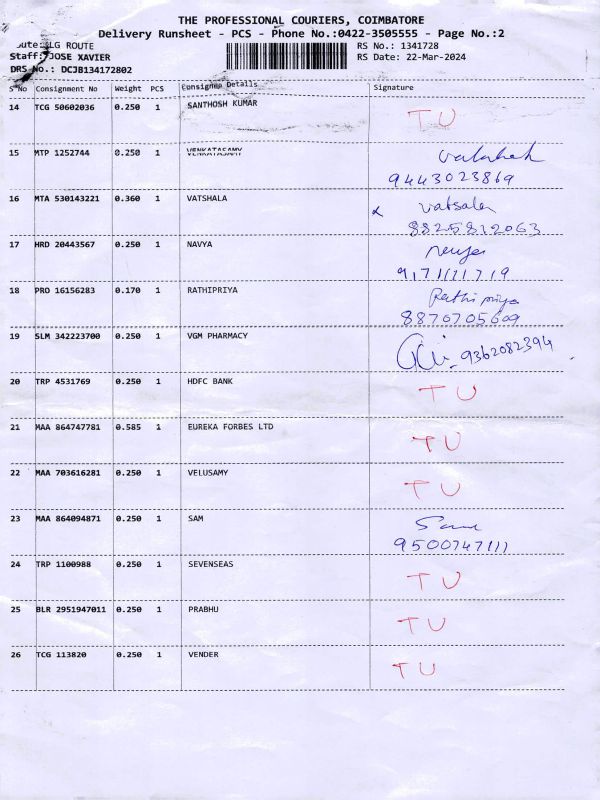 THE PROFESSIONAL COURIERS, COIMBATORE
Delivery Runsheet - PCS - Phone No.:0422-3505555 - Page No.:2
LG ROUTE
RS No.: 1341728
Staff: JOSE XAVIER
RS Date: 22-Mar-2024
DRS No.: DCJB134172802
S No Consignment No Weight PCS Consignee Details Signature
14 TCG 50602036 0.250 1 SANTHOSH KUMAR TU
15 MTP 1252744 0.250 1 VENKATASAMY
9443023869
16 MTA 530143221 0.360 1 VATSHALA vatsala
8825812063
17 HRD 20443567 0.250 1 NAVYA
18 PRO 16156283 0.170 1 RATHIPRIYA Rathipriya
8870705609
19 SLM 342223700 0.250 1 VGM PHARMACY 9362082394
20 TRP 4531769 0.250 1 HDFC BANK TU
21 MAA 864747781 0.585 1 EUREKA FORBES LTD TU
22 MAA 703616281 0.250 1 VELUSAMY TU
23 MAA 864094871 0.250 1 SAM Sam
9500747111
24 TRP 1100988 0.250 1 SEVENSEAS TU
25 BLR 2951947011 0.250 1 PRABHU TU
26 TCG 113820 0.250 1 VENDER TU